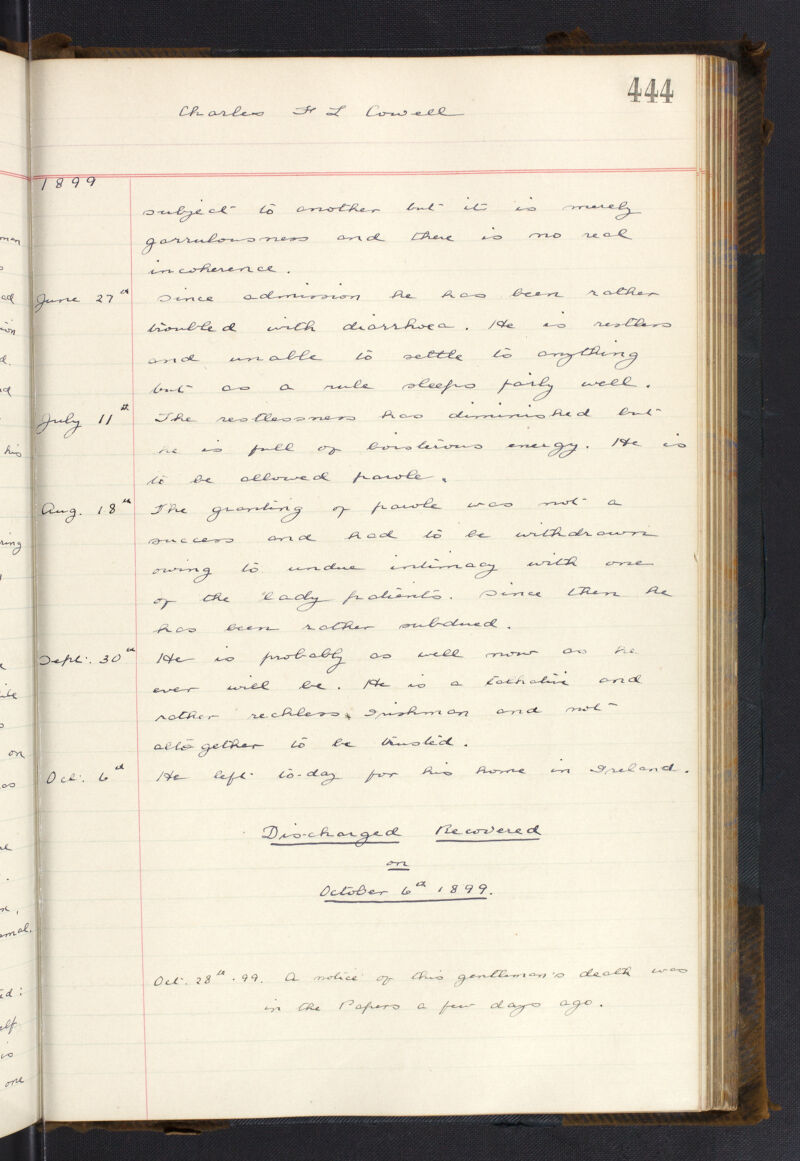 444
Charles F L Cowell
1899
subject to another but it is merely
garrulousness and there is no real
incoherence.
June 27th Since admission he has been rather
troubled with diarrhoea. He is restless
and unable to settle to anything
but as a rule sleeps fairly well.
July 11th The restlessness has diminished but
he is full of boisterous energy. He is
to be allowed parole.
Aug. 18th The granting of parole was not a
success and had to be withdrawn
owing to undue intimacy with one
of the lady patients. Since then he
has been rather subdued.
Sept. 30th He is probably as well now as he
ever will be. He is a talkative and
rather reckless Irishman and not
altogether to be trusted.
Oct. 6th He left to-day for his home in Ireland.
Discharged Recovered
on
October 6th 1899.
Oct. 28th. 99. A notice of this gentleman's death was
in the Papers a few days ago.